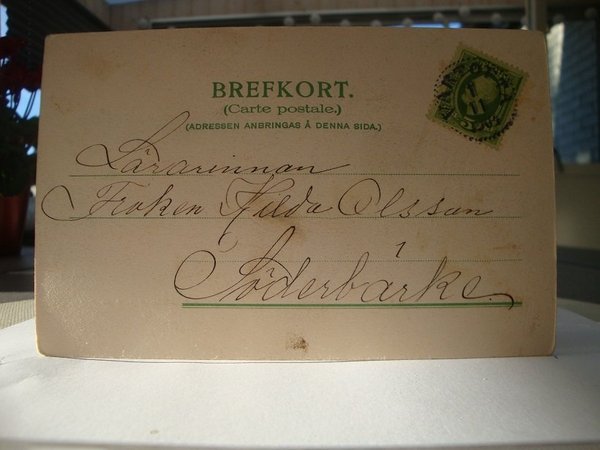 BREFKORT.
(Carte postale.)
(ADRESSEN ANBRINGAS Å DENNA SIDA.)
Lärarinnan
Fröken Hilda Olsson
i
Söderbärke.